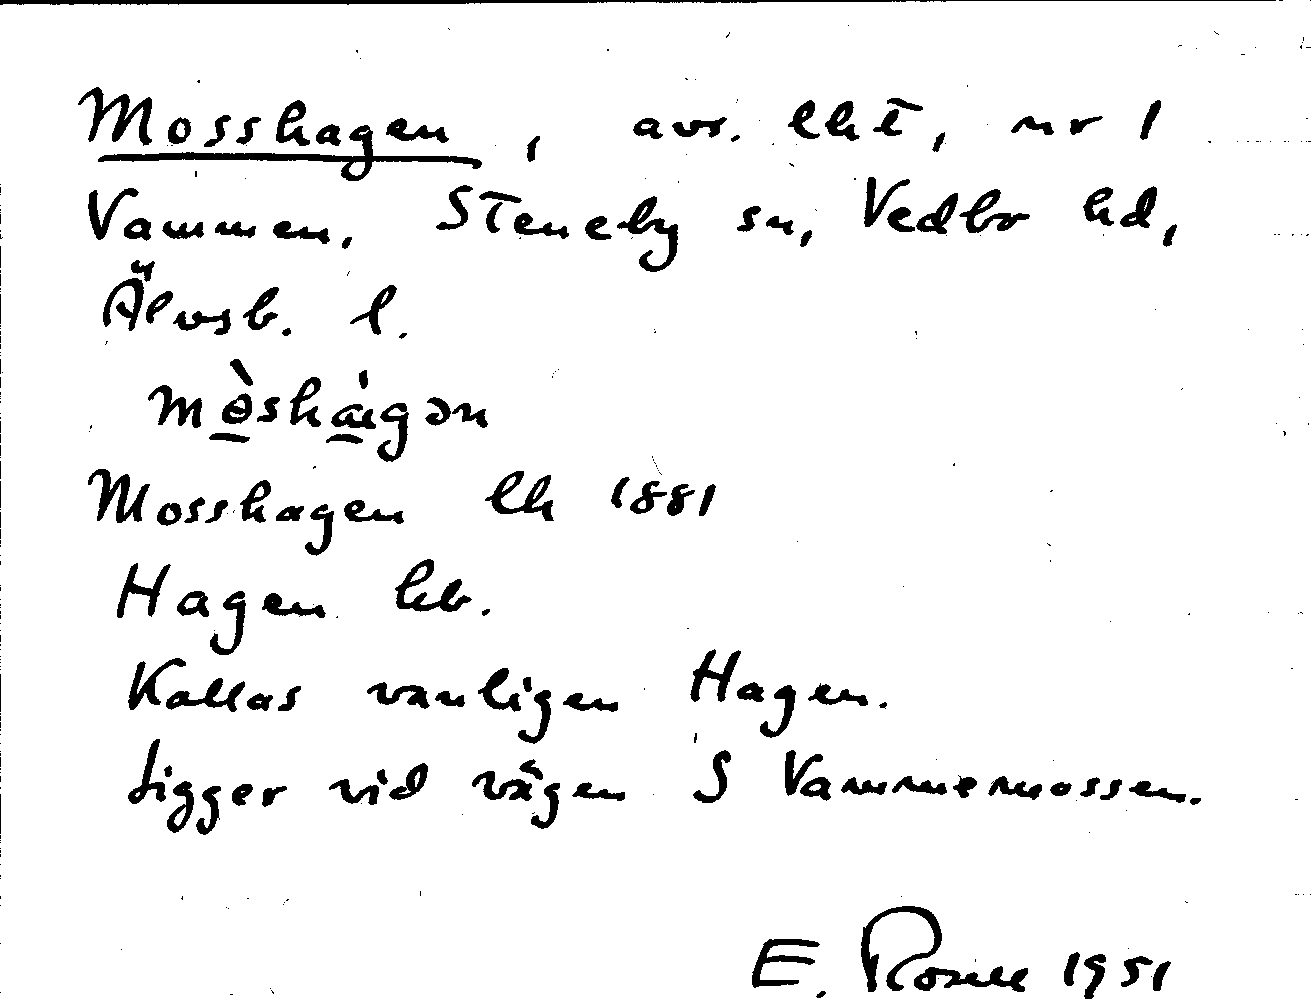 Mosshagen, avs. lht, nr 1
Vammen, Steneby sn, Vedbo hd,
Älvsb. l.
mɵ̀shá̱gən
Mosshagen lh 1881
Hagen hb.
Kallas vanligen Hagen.
Ligger vid vägen S Vammemossen.
E. Rosell 1951